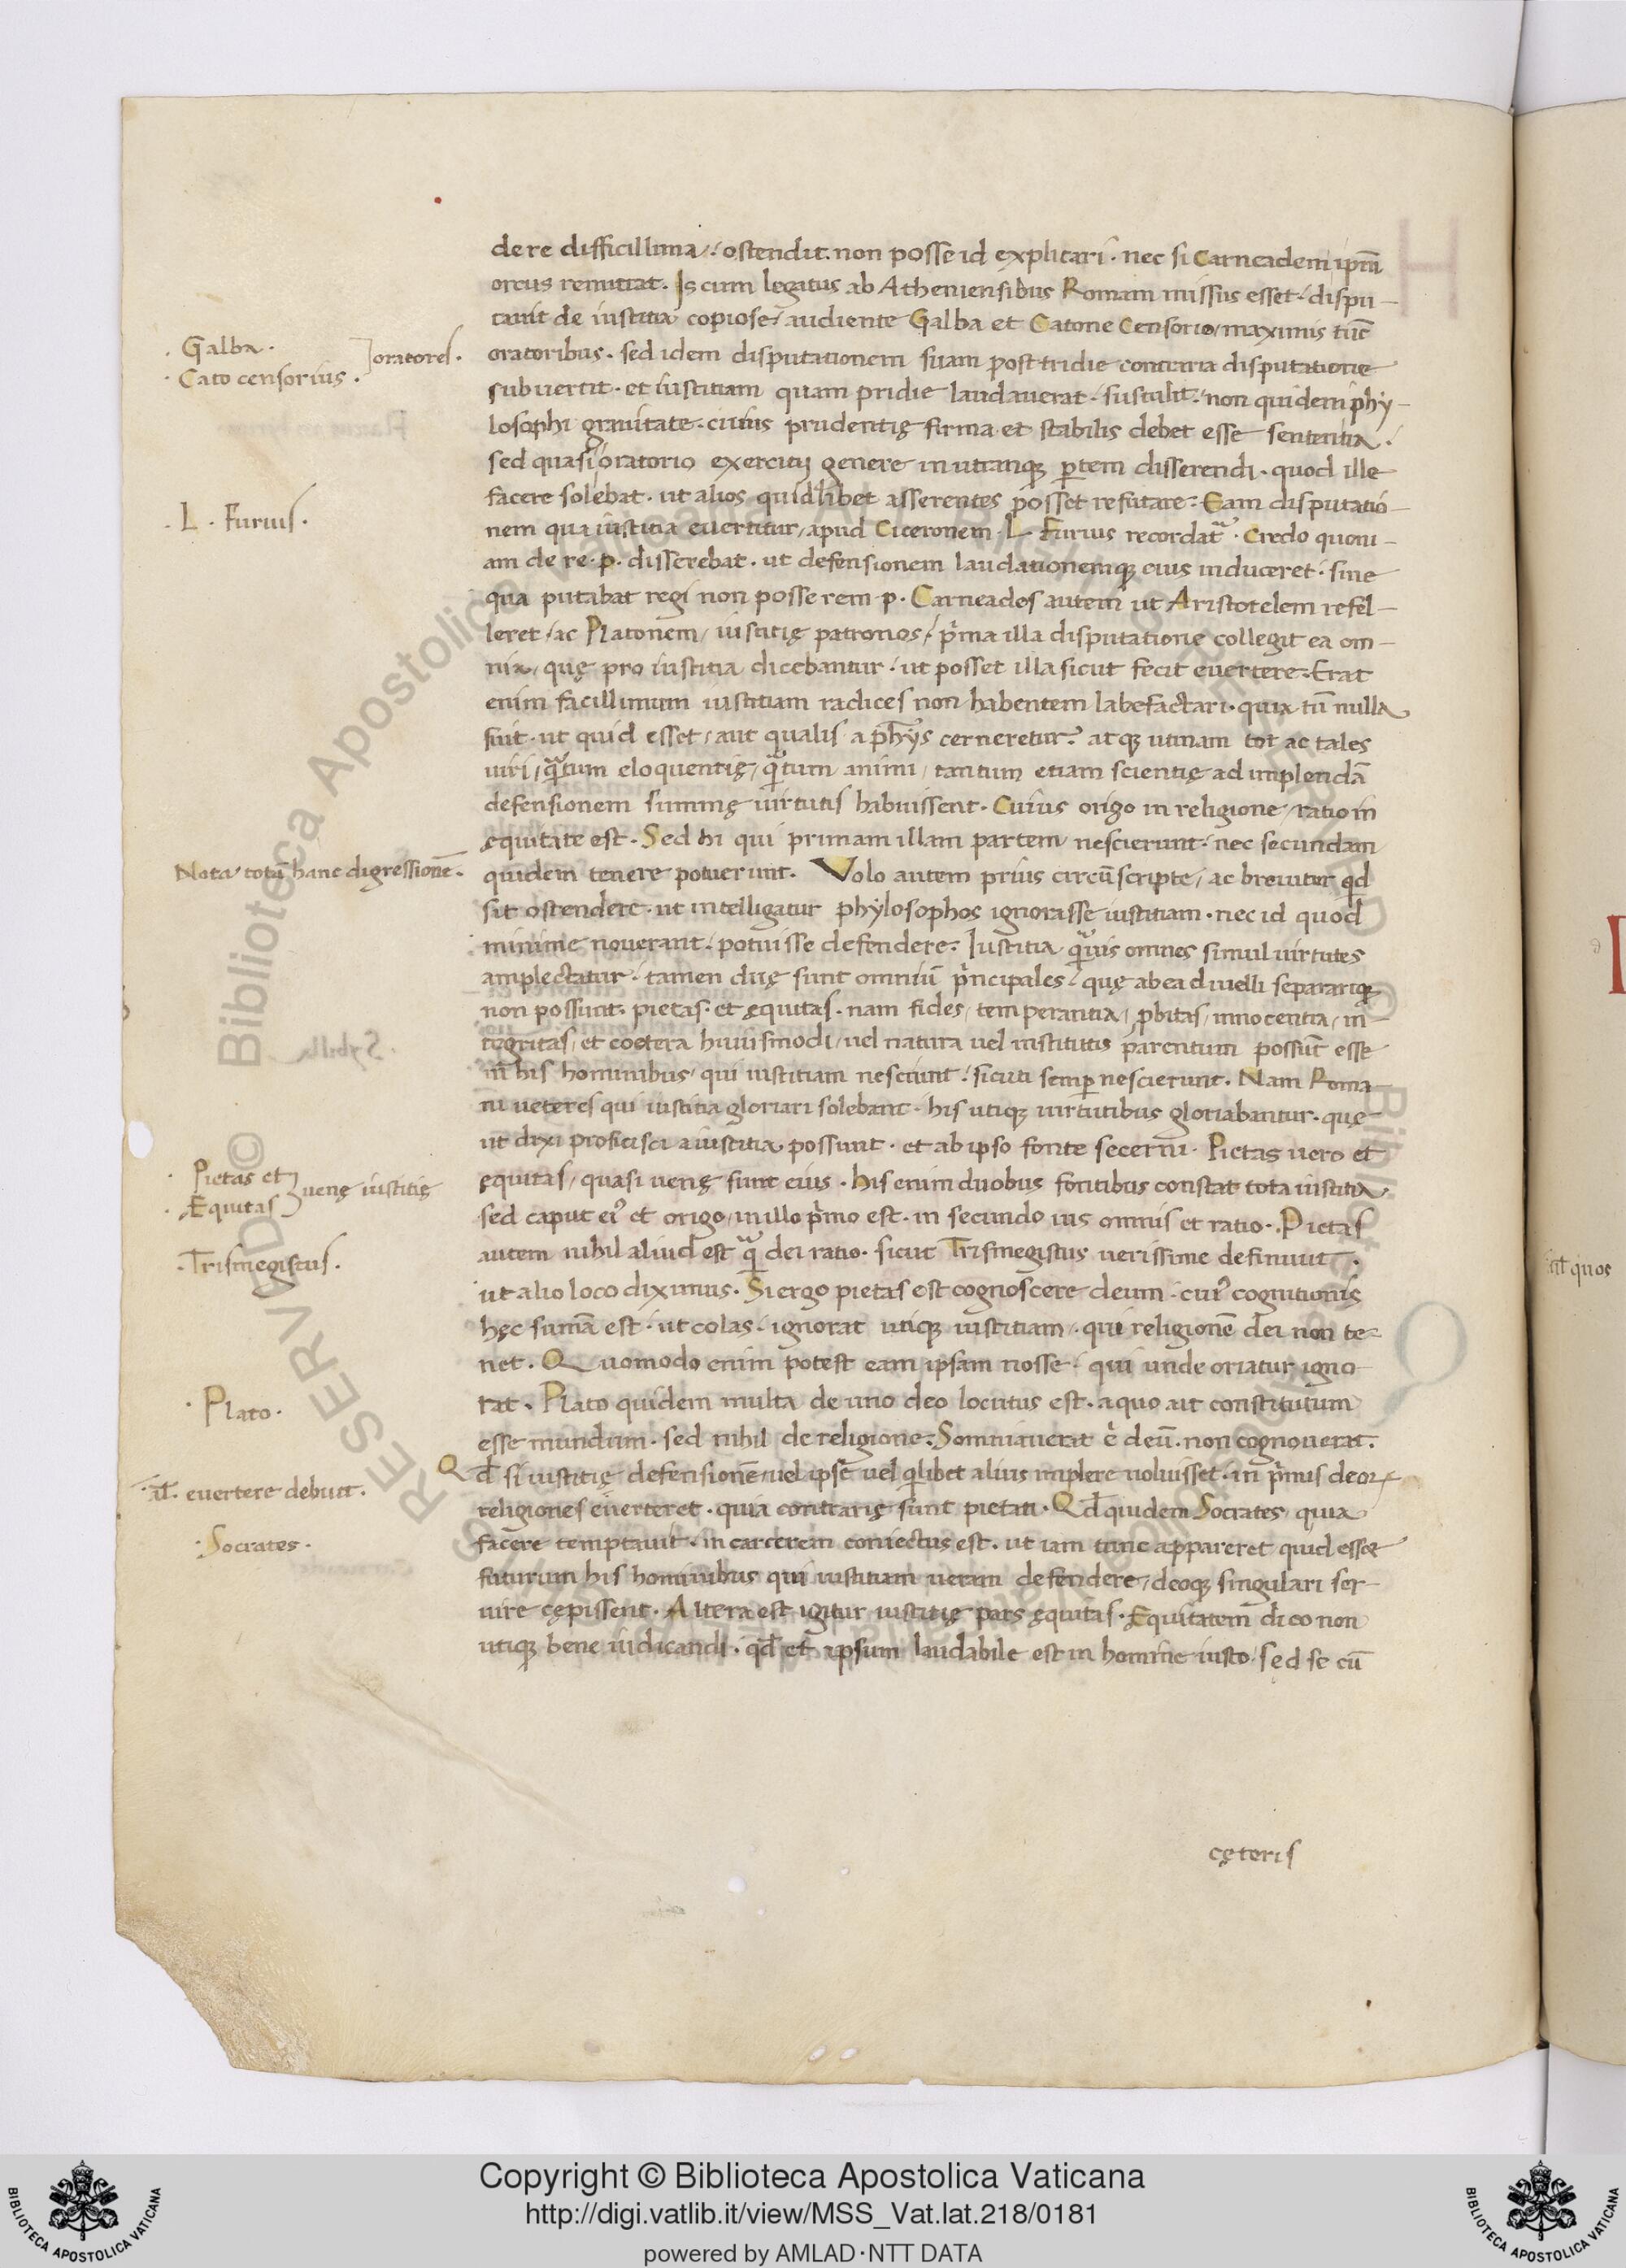 de re difficillima: ostendit. non posse id explicari. nec si Carneadem ipm̄
orcus remittat. Is cum legatus ab Atheniensibus Romam missus esset: dispu-
tauit de iustitia copiose, audiente Galba et Catone Censorio, maximis tūc
Galba.
Cato censorius. ] oratores.
oratoribus. sed idem disputationem suam post tridie contraria disputatione
subuertit. et iustitiam quam pridie laudauerat. sustulit. non quidem phy-
losophi grauitate. cuius prudentię firma et stabilis debet esse sententia.
sed quasi oratorio exercitij genere in utranq; ꝑtem disserendi. quod ille
L. Furius.
facere solebat. ut alios quidlibet asserentes posset refutare. Eam disputatio-
nem qua iustitia euertitur, apud Ciceronem. L. Furius recordat᷑. Credo quoni-
am de re. p. disserebat. ut defensionem laudationemq; eius induceret. sine
qua putabat regi non posse rem p. Carneades autem ut Aristotelem refel-
leret, ac Platonem, iustitię patronos, p̊ma illa disputatione collegit ea om-
nia, quę pro iustitia dicebantur. ut posset illa sicut fecit euertere. Erat
enim facillimum iustitiam radices non habentem labefactari. quia tū nulla
fuit. ut quid esset, aut qualis a ph̄ys cerneretur. atq; utinam tot ac tales
uiri, qᷓtum eloquentię, qᷓtum animi, tantum etiam scientię ad implendā
defensionem summę uirtutis habuissent. Cuius origo in religione, ratio in
ęquitate est. Sed hi qui primam illam partem nescierunt. nec secundam
Nota totā hanc digressionē.
quidem tenere potuerunt. Volo autem prius circūscripte, ac breuiter qd
sit ostendere. ut intelligatur phylosophos ignorasse iustitiam. nec id quod
minime nouerant. potuisse defendere. Iustitia qᷓuis omnes simul uirtutes
amplectatur. tamen duę sunt omniū p̊ncipales. quę ab ea diuelli separariq;
non possunt. pietas. et ęquitas. nam fides, temperantia, ꝓbitas, innocentia, in-
tegritas, et coetera huiusmodi, uel natura uel institutis parentum possūt esse
in his hominibus, qui iustitiam nesciunt. sicuti semꝑ nescierunt. Nam Roma-
ni ueteres qui iustitia gloriari solebant. his utiq; uirtutibus gloriabantur. quę
ut dixi proficisci a iustitia possunt. et ab ipso fonte secerni. Pietas uero et
Pietas et
Equitas } uenę iustitię
ęquitas, quasi uenę sunt eius. his enim duobus fontibus constat tota iustitia,
sed caput eiꝰ et origo, in illo p̊mo est. in secundo uis omnis et ratio. Pietas
Trismegistus.
autem nihil aliud est qᷓ dei ratio. sicut Trismegistus uerissime definiuit.
ut alio loco diximus. Si ergo pietas est cognoscere deum. cuiꝰ cognitionis
hęc sum̄a est. ut colas. ignorat utiq; iustitiam. qui religionē dei non te-
net. Quomodo enim potest eam ipsam nosse. qui unde oriatur igno-
Plato.
rat. Plato quidem multa de uno deo locutus est. a quo ait constitutum
esse mundum. sed nihil de religione. Somniauerat .n. deū. non cognouerat.
al. euertere debuit.
Qd si iustitię defensionē, uel ipse uel qilibet alius implere uoluisset. in p̊mis deoꝝ
religiones euerteret. quia contrarię sunt pietati. Qd quidem Socrates, quia
Socrates.
facere temptauit. in carcerem coniectus est. ut iam tunc appareret quid esset
futurum his hominibus qui iustitiam ueram defendere, deoq; singulari ser-
uire cępissent. Altera est igitur iustitię pars ęquitas. Equitatem dico non
utiq; bene iudicandi. qd et ipsum laudabile est in homine iusto. sed se cū
cęteris
Copyright © Biblioteca Apostolica Vaticana
http://digi.vatlib.it/view/MSS_Vat.lat.218/0181
powered by AMLAD·NTT DATA